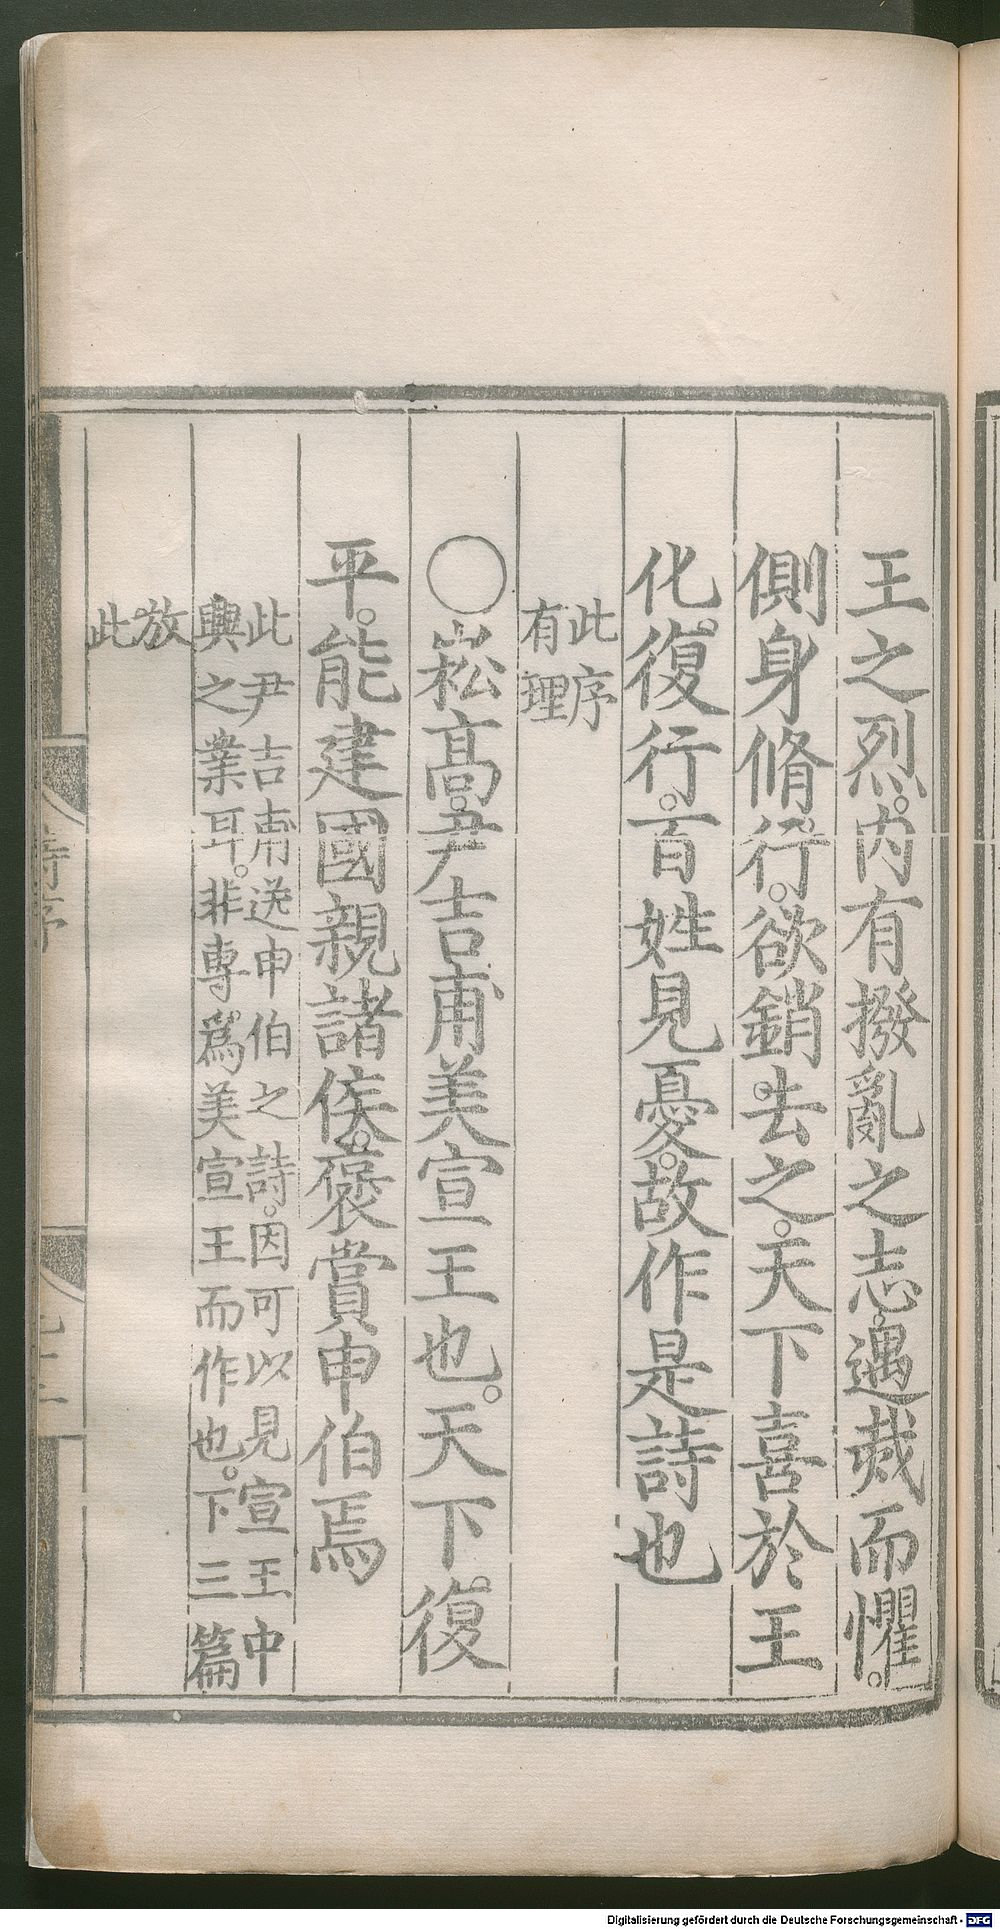 王之烈。内有撥亂之志。遇烖而懼。
側身脩行。欲銷去之。天下喜於王
化。復行。百姓見憂。故作是詩也
此序
有理
〇崧高。尹吉甫美宣王也。天下復
平。能建國親諸侯。褒賞申伯焉
此尹吉甫送申伯之詩。因可以見宣王中
興之業耳。非專爲美宣王而作也。下三篇
放
此
詩序
Digitalisierung gefördert durch die Deutsche Forschungsgemeinschaft - DFG